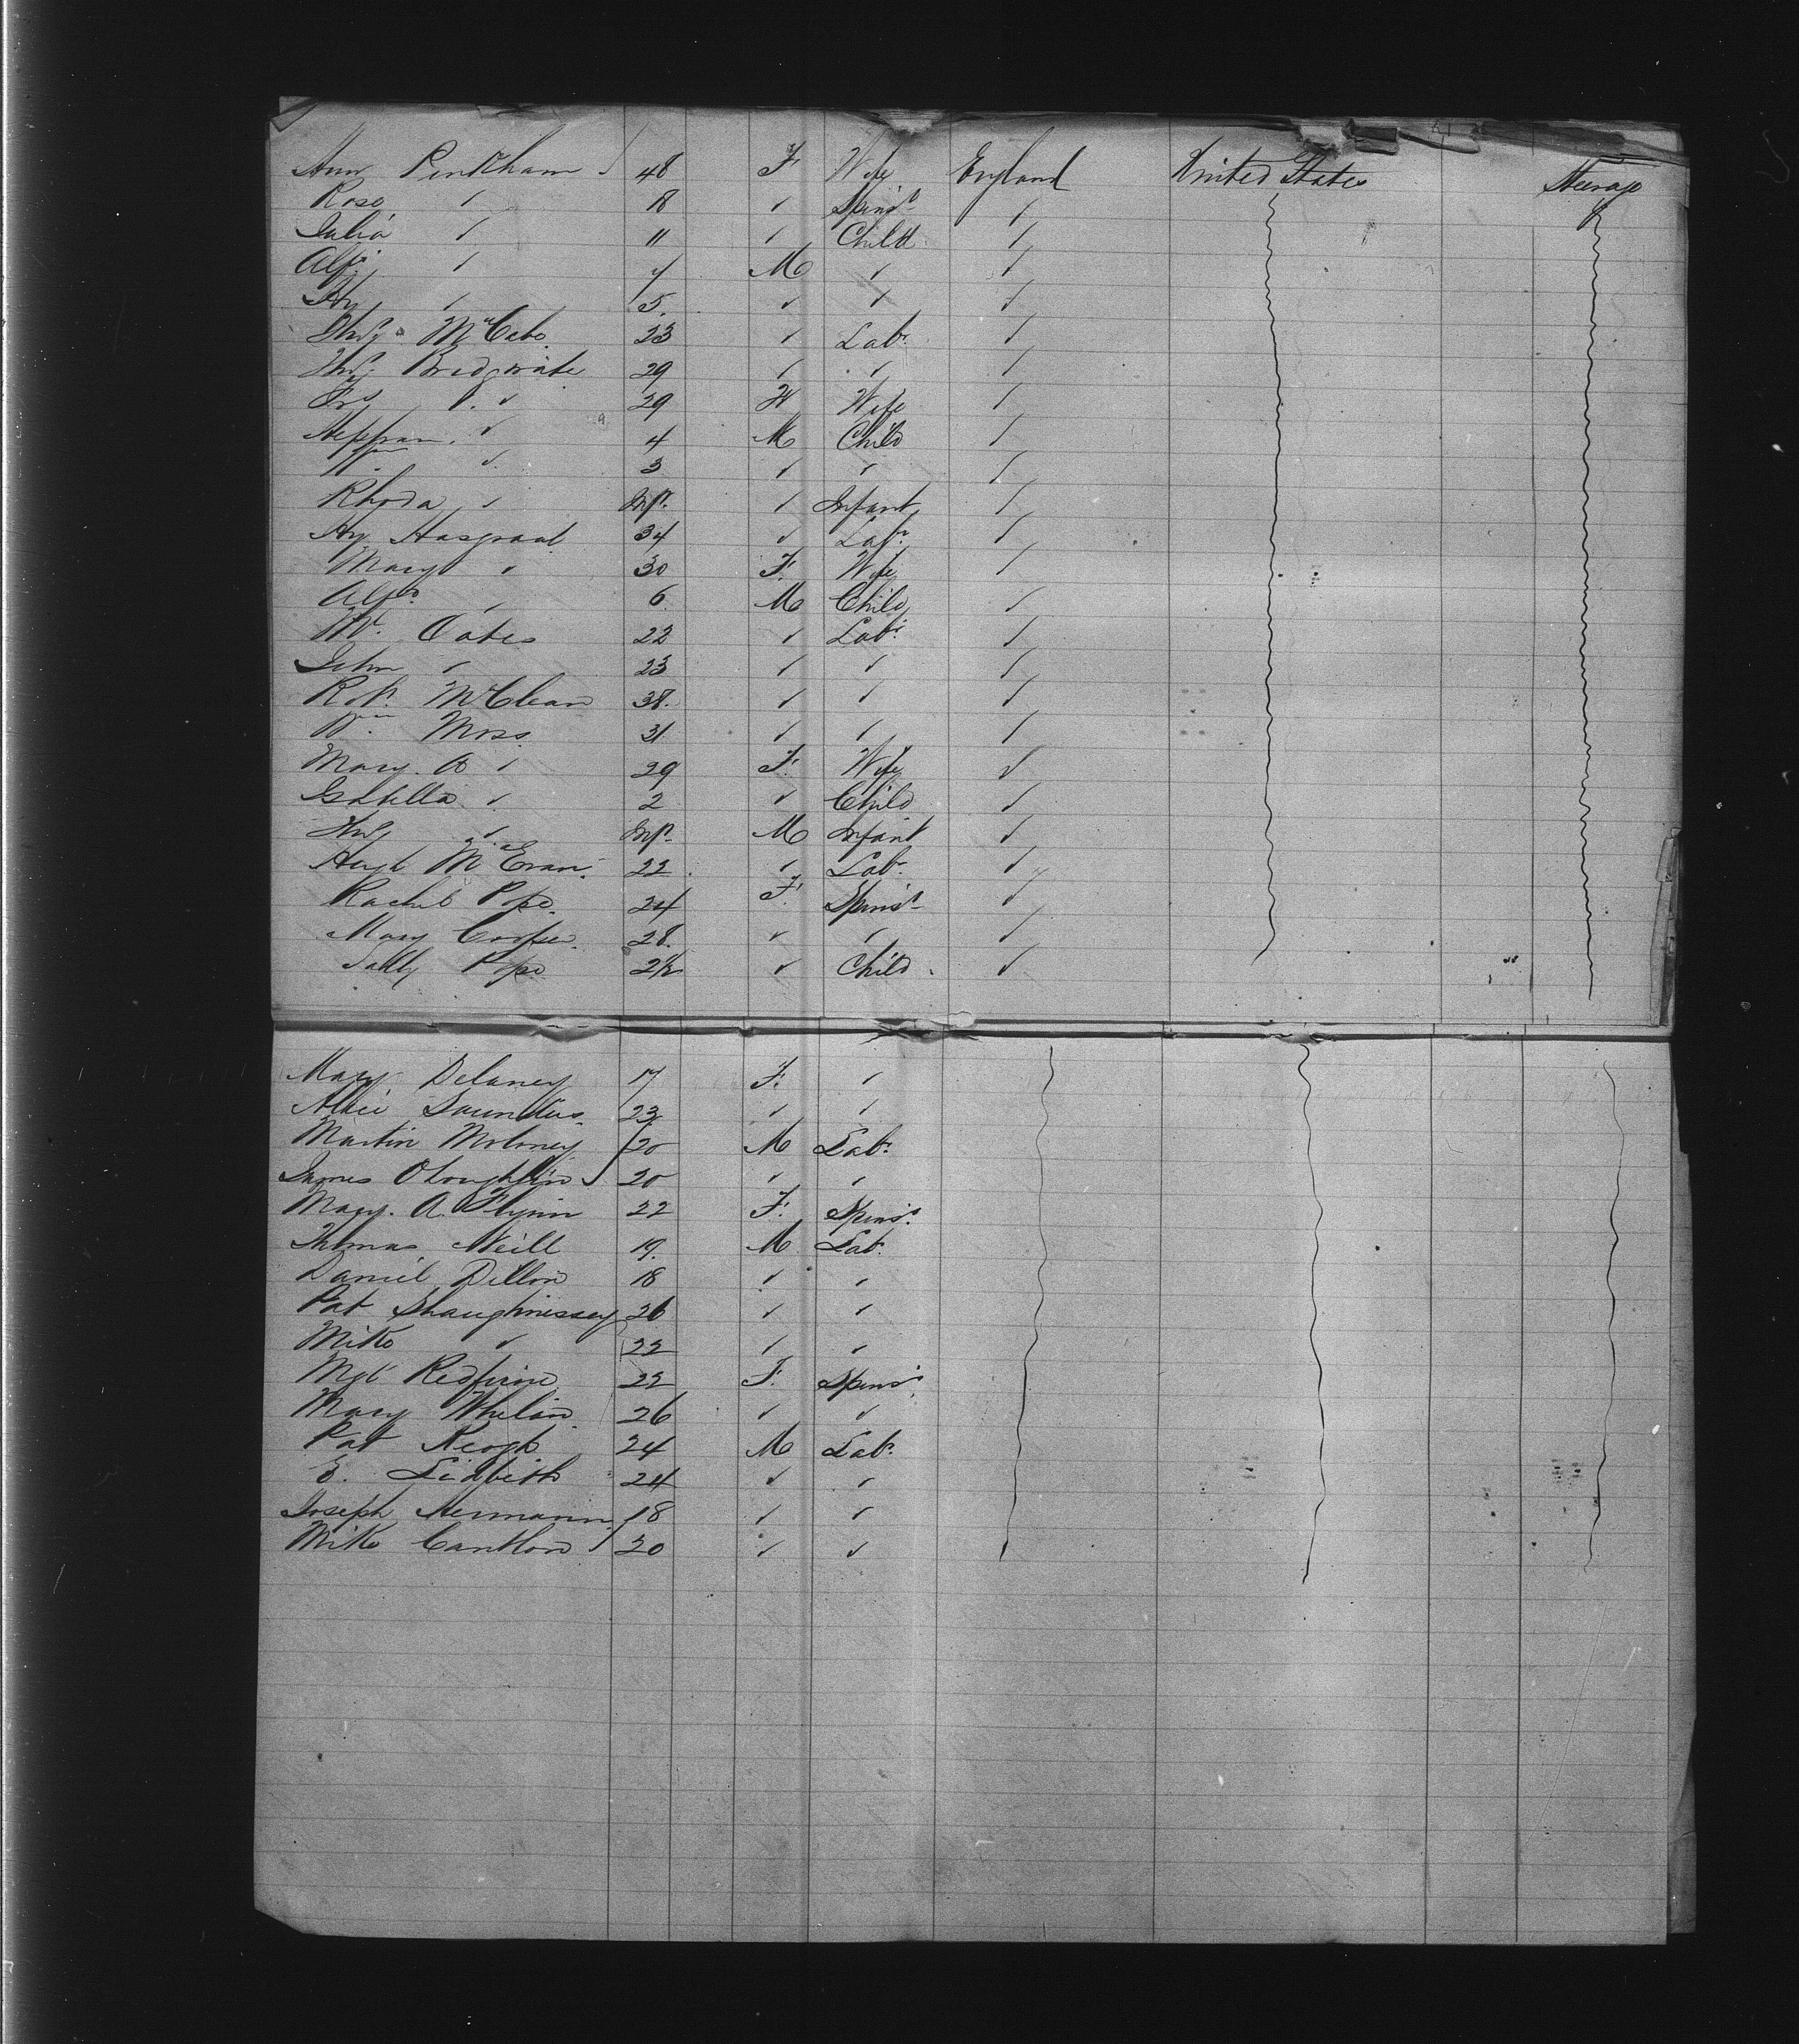 Ann Pinkham 48 F. Wife England United States Steerage
Rose " 18 " Spinsr "
Julia " 11 " Child "
Alfd " 7 M " "
Hy " 5 " " "
Thos McCabe. 23 " Labr "
Thos Bridgwate 29 " " "
Frs " 29 W Wife "
" 4 M Child "
" 3 " " "
Rhoda " Inft. " Infant "
Hy 34 " Labr "
Mary " 30 F. Wife "
Alfd. " 6 M Child "
W. Oates 22 " Labr "
John " 23 " " "
Robt. McClean 38. " " "
Wm Moss. 31 " " "
Mary. A " 29 F. Wife "
Isabella " 2 " Child "
" Inft. M Infant "
Hugh McEvan. 22 " Labr "
Rachel Pope. 24 F. Spinsr "
Mary Cooper. 28. " " "
Sally Pope 2½ " Child. "
Mary Delaney 17 F. "
Alice Saunders. 23 " "
Martin Moloney 20 M Labr
James OLoughlin 20 " "
Mary. A. Flynn 22 F. Spinsr.
Thomas Neill 19. M Labr
Daniel Dillon 18 " "
Pat Shaughnessey 26 " "
Mike " 22 " "
Mgt 22 F. Spinsr
Mary Whelan 26 " "
Pat Keogh 24 M Labr
E. 24 " "
Joseph Hermann 18 " "
Mike Canthon 20 " "